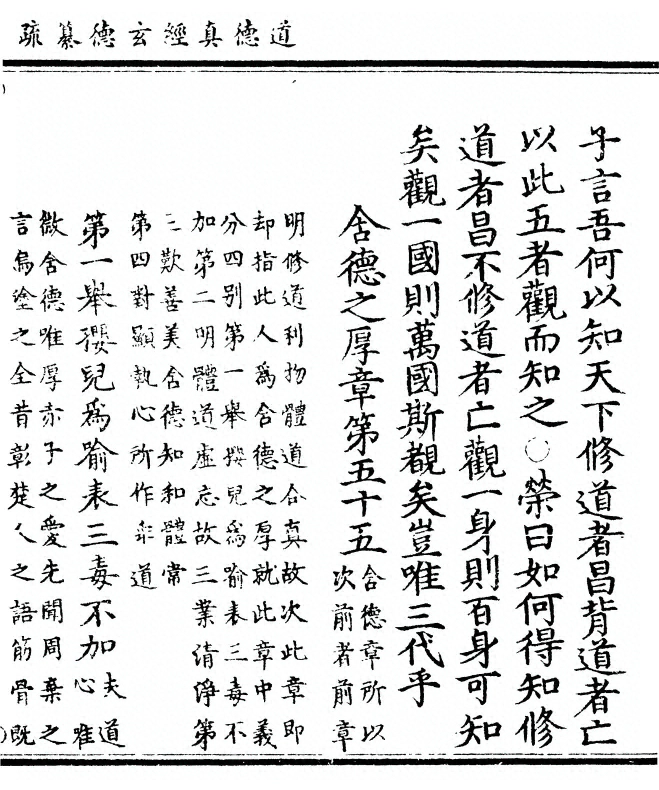 道德真經玄德纂疏
子言吾何以知天下修道者昌背道者亡
以此五者觀而知之○榮曰如何得知修
道者昌不修道者亡觀一身則百身可知
矣觀一國則萬國斯覩矣豈唯三代乎
含德之厚章第五十五
含德章所以
次前者前章
明修道利物體道合真故次此章即
却指此人爲含德之厚就此章中義
分四别第一舉孾兒爲喻表三毒不
加第二明體道虛忘故三業清淨第
三歎善美含德知和體常
第四對顯執心所作乖道
第一舉孾兒爲喻表三毒不加
夫道
心唯
微含德唯厚赤子之愛先聞周棄之
言爲塗之全昔彰楚人之語筋骨既